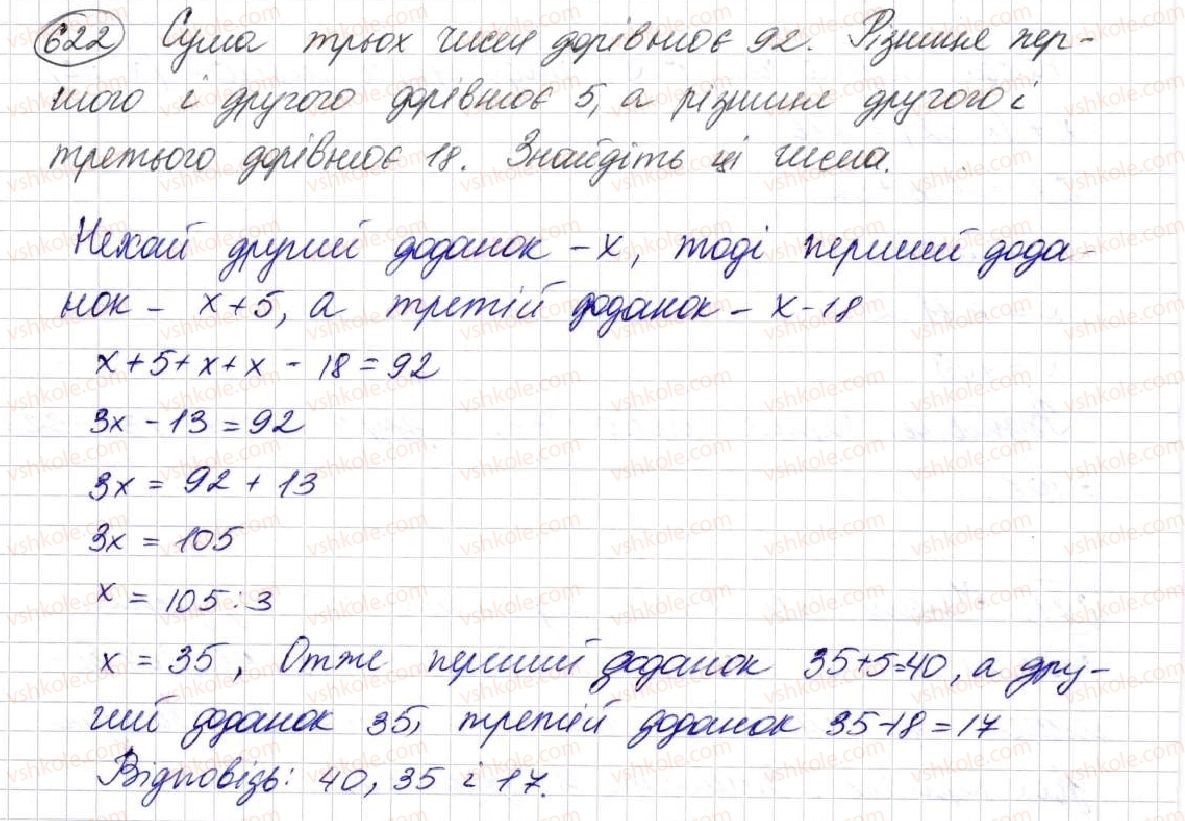 622 Сума трьох чисел дорівнює 92. Різниця пер-
шого і другого дорівнює 5, а різниця другого і
третього дорівнює 18. Знайдіть ці числа.
Нехай другий доданок - x, тоді перший дода-
нок - x+5, а третій доданок - x-18
x+5+x+x-18=92
3x-13=92
3x=92+13
3x=105
x=105:3
x=35, Отже перший доданок 35+5=40, а дру-
гий доданок 35, третій доданок 35-18=17
Відповідь: 40, 35 і 17.